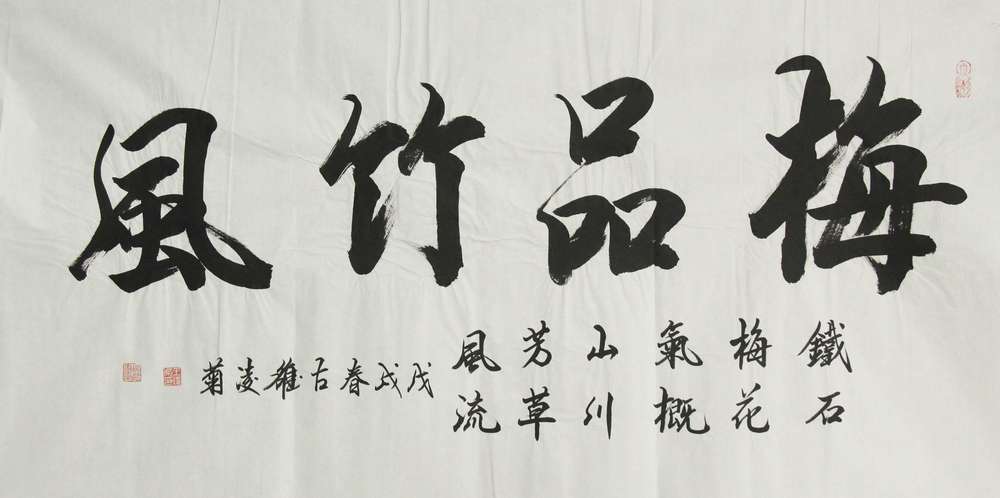 梅品竹風
鐵石
梅花
氣概
山川
芳草
風流
戊戌春古雒凌菊